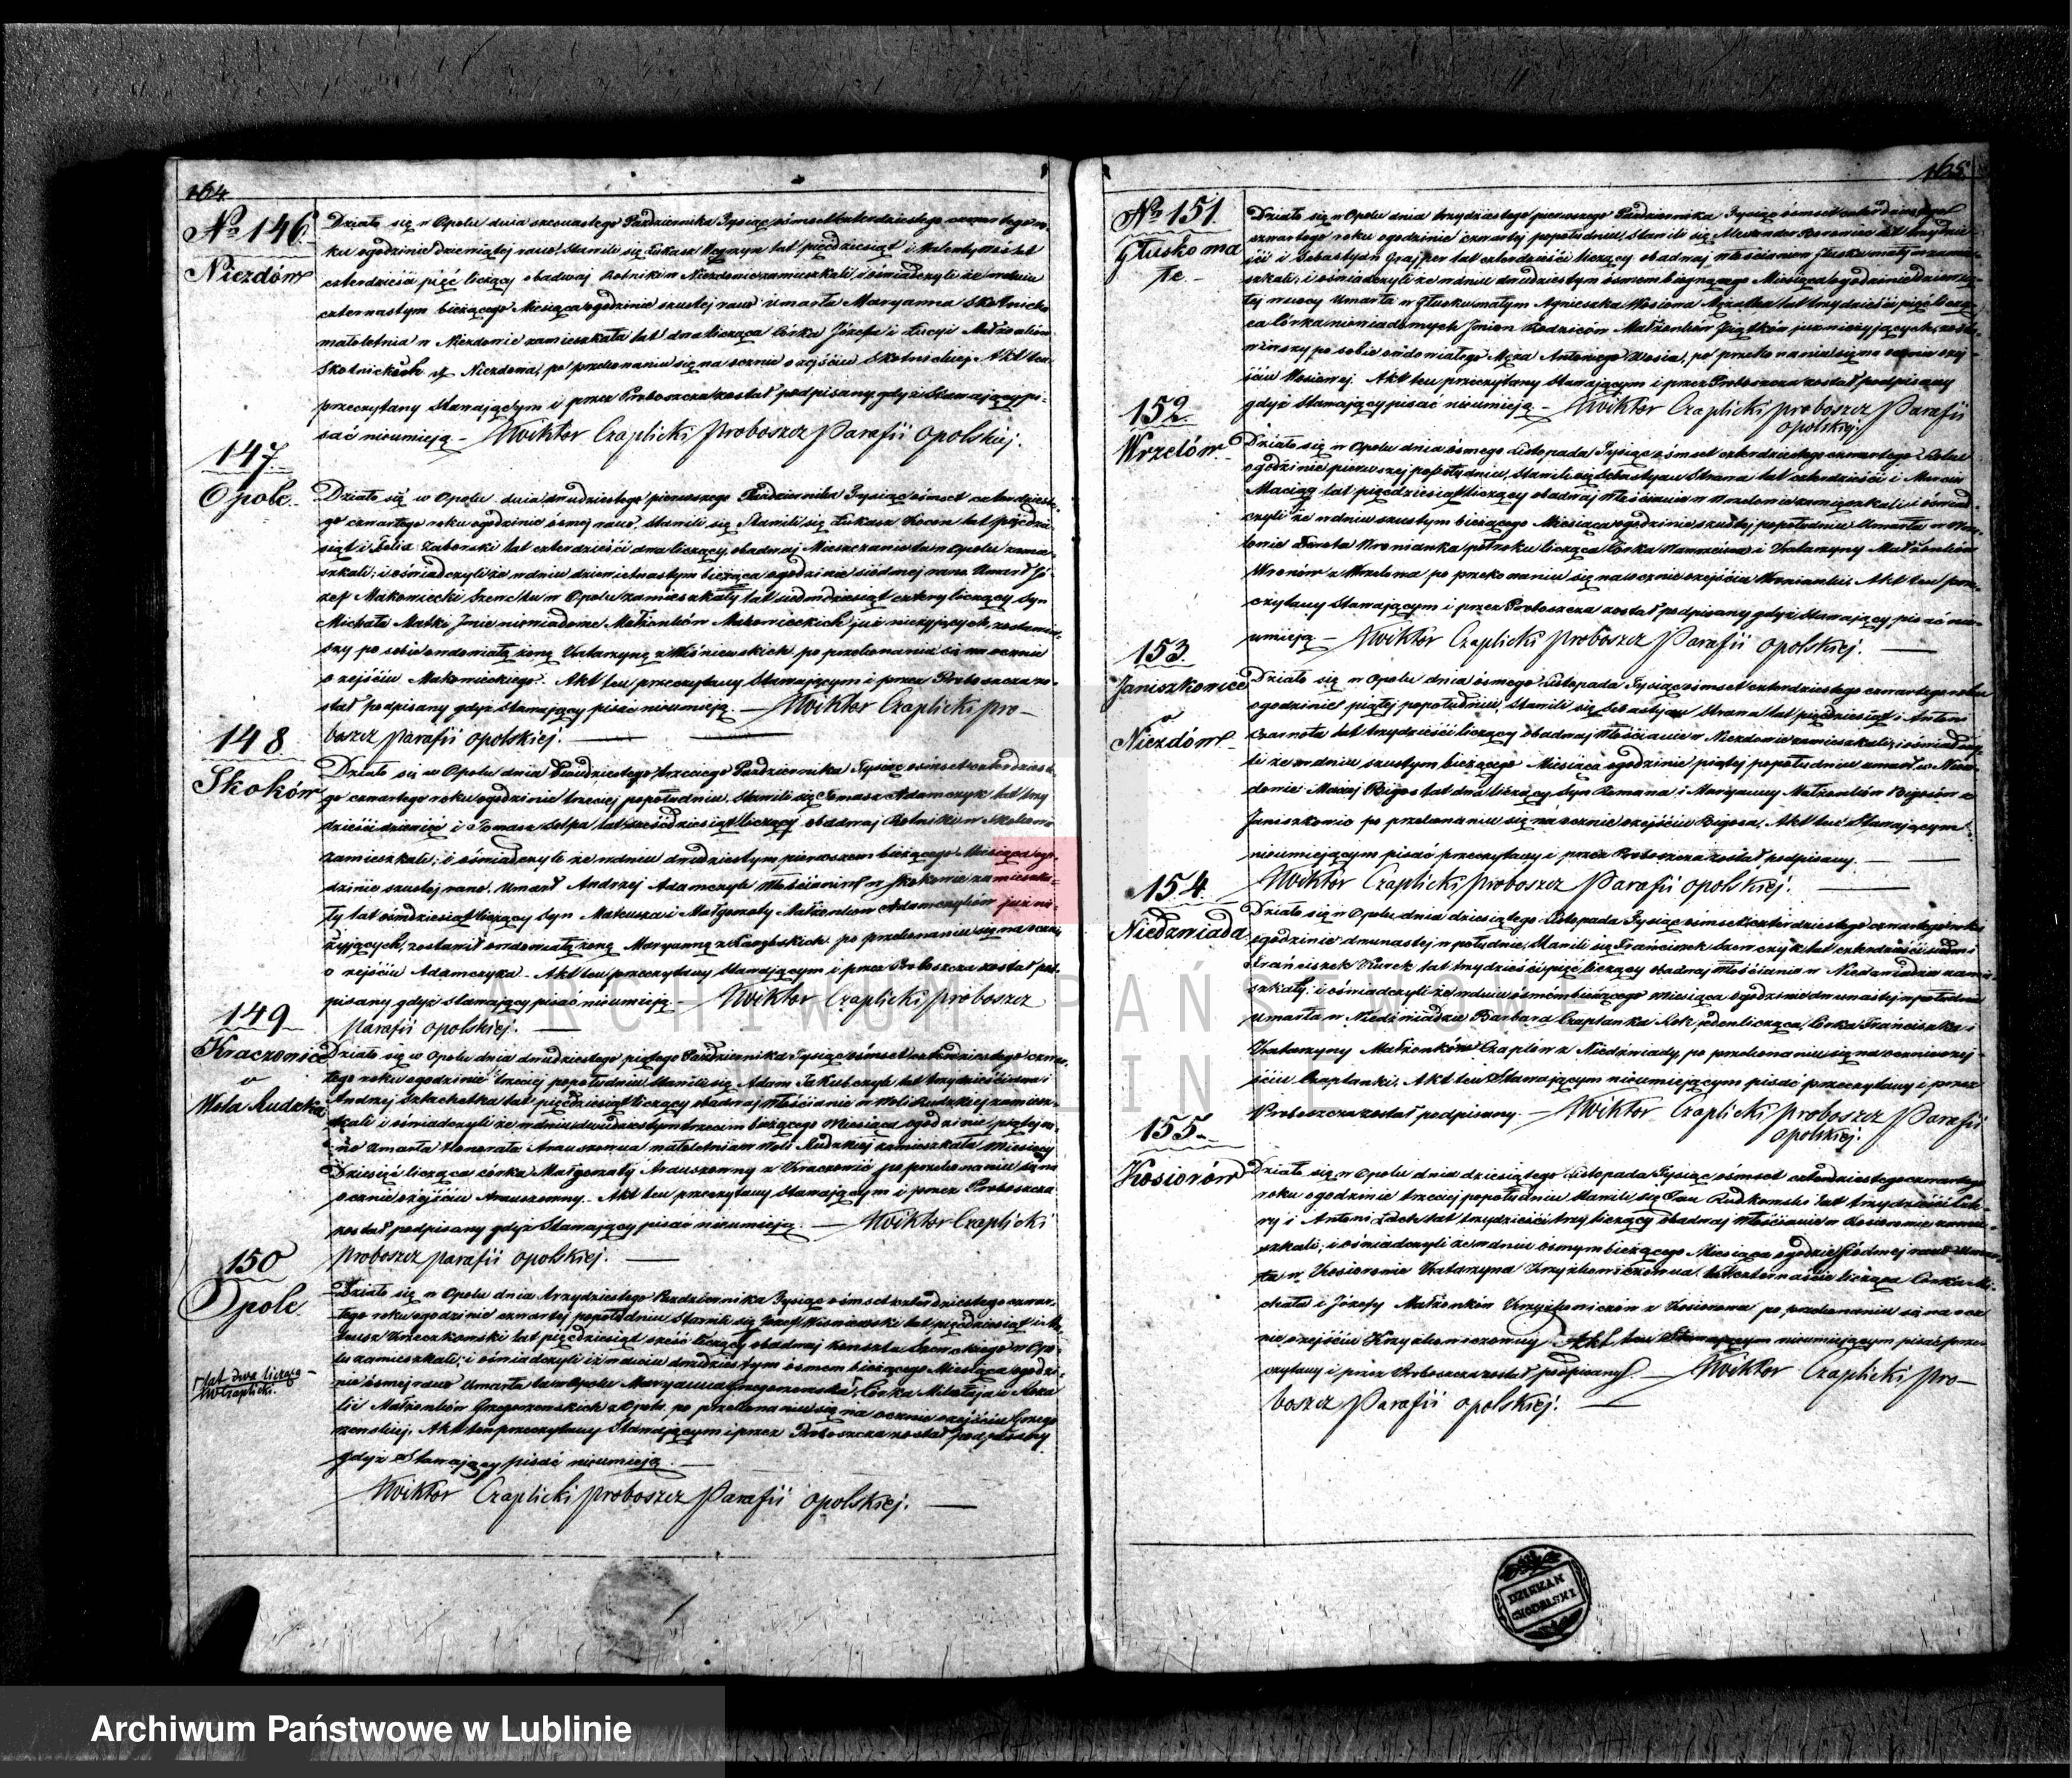 164
No 146.
Niezdów
Działo się w Opolu dnia szesnastego Października Tysiąc ośmset czterdziestego czwartego ro-
ku o godzinie dziewiątej rano, Stawili się Łukasz lat pięćdziesiąt i Walenty lat
czterdzieści pięć liczący obadwaj Rolnicy w Niezdowie zamieszkali, i oświadczyli że w dniu
czternastym bieżącego Miesiąca o godzinie szóstej rano umarła Maryanna Skotnicka
małoletnia w Niezdowie zamieszkała lat dwa licząca Córka Józefa i Łucyi Małżonków
Skotnickich z Niezdowa, po przekonaniu się na ocznie o zejściu Skotnickiej. Akt ten
przeczytany Stawającym i przez Proboszcza został podpisany gdyż Stawający pi-
sać nieumieją. – Wiktor Czaplicki Proboszcz Parafii Opolskiej.
147.
Opole.
Działo się w Opolu dnia dwudziestego pierwszego Października Tysiąc ośmset czterdzieste-
go czwartego roku o godzinie ósmej rano, Stawili się Stawili się Łukasz Kocon lat pięćdzie-
siąt i Felix Zaborski lat czterdzieści dwa liczący, obadwaj Mieszczanie tu w Opolu zamie-
szkali; i oświadczyli że w dniu dziewietnastym bieżąca o godzinie siódmej rano Umarł Jó-
zef Makowiecki Szewc tu w Opolu zamieszkały lat siedmdziesiąt cztery liczący Syn
Michała Matki Imie niewiadome Małżonków Makowieckich już nieżyjących, zostawiw-
szy po sobie owdowiałą żonę Katarzynę z Wiśniewskich. po przekonaniu się na ocznie
o zejściu Makowieckiego. Akt ten przeczytany Stawającym i przez Proboszcza zo-
stał podpisany gdyż Stawający pisać nieumieją. – Wiktor Czaplicki Pro-
boszcz Parafii Opolskiej.
148
Skoków
Działo się w Opolu dnia Dwudziestego trzeciego Października Tysiąc ośmset czterdzieste-
go czwartego roku o godzinie trzeciej popołudniu, Stawili się Tomasz Adamczyk lat trzy
dzieści dziewięć i Tomasz lat sześćdziesiąt liczący obadwaj Rolnicy w Skokowie
zamieszkali; i oświadczyli że w dniu dwudziestym pierwszem bieżącego Miesiąca o go-
dzinie szóstej rano, Umarł Andrzej Adamczyk Włościanin w Skokowie zamieszka-
ły lat ośmdziesiąt liczący Syn Mateusza i Małgorzaty Małżonków Adamczyków już nie-
żyjących, zostawił owdowiałą żonę Maryannę po przekonaniu się na oczn
o zejściu Adamczyka. Akt ten przeczytany Stawającym i przez Proboszcza został pod-
pisany gdyż Stawający pisać nieumieją. – Wiktor Czaplicki Proboszcz
Parafii Opolskiej.
149
Kraczewice
Wola Rudzka
Działo się w Opolu dnia dwudziestego piątego Października Tysiąc ośmset czterdziestego czwar-
tego roku o godzinie trzeciej popołudniu, Stawili się Adam Jakubczyk lat trzydzieści i
Andrzej Szlachetka lat pięćdziesiąt liczący obadwaj Włościanie w Woli Rudzkiej zamiesz-
kali i oświadczyli że w dniu dwudziestym trzecim bieżącego Miesiąca o godzinie piątej ra-
no Umarła Honorata małoletnia w Woli Rudzkiej zamieszkała Miesięcy
Dziesięć licząca córka Małgorzaty z Kraczewic po przekonaniu się na
ocznie o zejściu Akt ten przeczytany Stawającym i przez Proboszcza
został podpisany gdyż Stawający pisać nieumieją. – Wiktor Czaplicki
Proboszcz Parafii Opolskiej.
150
Opole
lat dwa licząca
W Czaplicki.
Działo się w Opolu dnia trzydziestego Października Tysiąc ośmset czterdziestego czwar-
tego roku o godzinie czwartej popołudniu Stawili się Józef Wiśniewski lat pięćdziesiąt i
lat pięćdziesiąt sześć liczący obadwaj Konsztu Szewckiego w Opo-
lu zamieszkali; i oświadczyli iż w dniu dwudziestym ósmem bieżącego Miesiąca o godzi-
nie ósmej rano Umarła tu w Opolu Maryanna Grzegorzewska, Córka Mikołaja i Roza-
lii Małżonków Grzegorzewskich z Opola, po przekonaniu się na ocznie o zejściu Grzego-
rzewskiej, Akt ten przeczytany Stawającym i przez Proboszcza został podpisany
gdyż Stawający pisać nieumieją. –
Wiktor Czaplicki Proboszcz Parafii Opolskiej.
165
No 151.
Głusko ma
łe. –
Działo się w Opolu dnia trzydziestego pierwszego Października Tysiąc ośmset czterdziestego
czwartego roku o godzinie czwartej popołudniu, Stawili się Alexander lat trzydzie-
ści i Sebastyan lat czterdzieści liczący obadwaj Włościanie w Głusku małym zamie-
szkali; i oświadczyli że w dniu dwudziestym ósmem bieżącego Miesiąca o godzinie dziewią-
tej w nocy Umarła w Głusku małym Agnieszka Wosiowa Mężatka lat trzydzieści pięć liczą-
ca Córka niewiadomych Imion Rodziców Małżonków już nieżyjących, zosta-
wiwszy po sobie owdowiałego Męża Antoniego Wosia, po przekonaniu się na ocznie o zej-
ściu Wosiowej. Akt ten przeczytany Stawającym i przez Proboszcza został podpisany
gdyż Stawający pisać nieumieją. – Wiktor Czaplicki Proboszcz Parafii
Opolskiej.
152.
Wrzelów
Działo się w Opolu dnia ósmego Listopada Tysiąc ośmset czterdziestego czwartego Roku
o godzinie pierwszej popołudniu, Stawili się Sebastyan Strawa lat czterdzieści i Marcin
Maciąg lat pięćdziesiąt liczący obadwaj Włościanie w Wrzelowie zamieszkali i oświad-
czyli że w dniu szóstym bieżącego Miesiąca o godzinie szóstej popołudniu Umarła w Wrze-
lowie Wronianka pół roku licząca Córka Wawrzeńca i Katarzyny Małżonków
Wronów z Wrzelowa po przekonaniu się na ocznie o zejściu Wronianki. Akt ten prze-
czytany Stawającym i przez Proboszcza został podpisany gdyż Stawający pisać nie-
umieją. – Wiktor Czaplicki Proboszcz Parafii Opolskiej.
153.
Janiszkowice
Niezdów
Działo się w Opolu dnia ósmego Listopada Tysiąc ośmset czterdziestego czwartego roku
o godzinie piątej popołudniu, Stawili się Sebastyan Strawa lat pięćdziesiąt i Antoni
Czarnota lat trzydzieści liczący obadwaj Włościanie w Niezdowie zamieszkali; i oświadczy-
li że w dniu szóstym bieżącego Miesiąca o godzinie piątej popołudniu umarł w Niez-
dowie Maciej Bigos lat dwa liczący Syn Romana i Maryanny Małżonków Bigosów z
Janiszkowic po przekonaniu się na ocznie o zejściu Bigosa, Akt ten Stawającym
nieumiejącym pisać przeczytany i przez Proboszcza został podpisany.
Wiktor Czaplicki Proboszcz Parafii Opolskiej.
154.
Niedzwiada
Działo się w Opolu dnia dziesiątego Listopada Tysiąc ośmset czterdziestego czwartego roku
o godzinie dwunastej w południe, Stawili się Franciszek Szewczyk lat czterdzieści siedm i
Franciszek Kurek lat trzydzieści pięć liczący obadwaj Włościanie w Niedzwiadzie zamie-
szkali; i oświadczyli że w dniu ósmem bieżącego Miesiąca o godzinie dwunastej w południe
Umarła w Niedźwiadzie Barbara Czaplanka Rok jeden licząca, Córka Franciszka i
Katarzyny Małżonków Czaplów z Niedźwiady, po przekonaniu się na ocznie o zej-
ściu Czaplanki, Akt ten Stawającym nieumiejącym pisać przeczytany i przez
Proboszcza został podpisany. – Wiktor Czaplicki Proboszcz Parafii
Opolskiej.
155.
Kosiorów
Działo się w Opolu dnia dziesiątego Listopada Tysiąc ośmset czterdziestego czwartego
roku o godzinie trzeciej popołudniu Stawili się Jan Rutkowski lat trzydzieści czte-
ry i Antoni Lach lat trzydzieści trzy liczący obadwaj Włościanie w Kosiorowie zamie-
szkali; i oświadczyli że w dniu ósmym bieżącego Miesiąca o godzinie siódmej rano Umar-
ła w Kosiorowie Katarzyna lat czternaście licząca Córka Mi-
chała i Józefy Małżonków z Kosiorowa po przekonaniu się na ocz-
nie o zejściu Akt ten Stawającym nieumiejącym pisać prze-
czytany i przez Proboszcza został podpisany. – Wiktor Czaplicki Pro-
boszcz Parafii Opolskiej.
DZIEKAN
CHODELSKI
ARCHIWUM PAŃSTWOWE
W LUBLINIE
Archiwum Państwowe w Lublinie